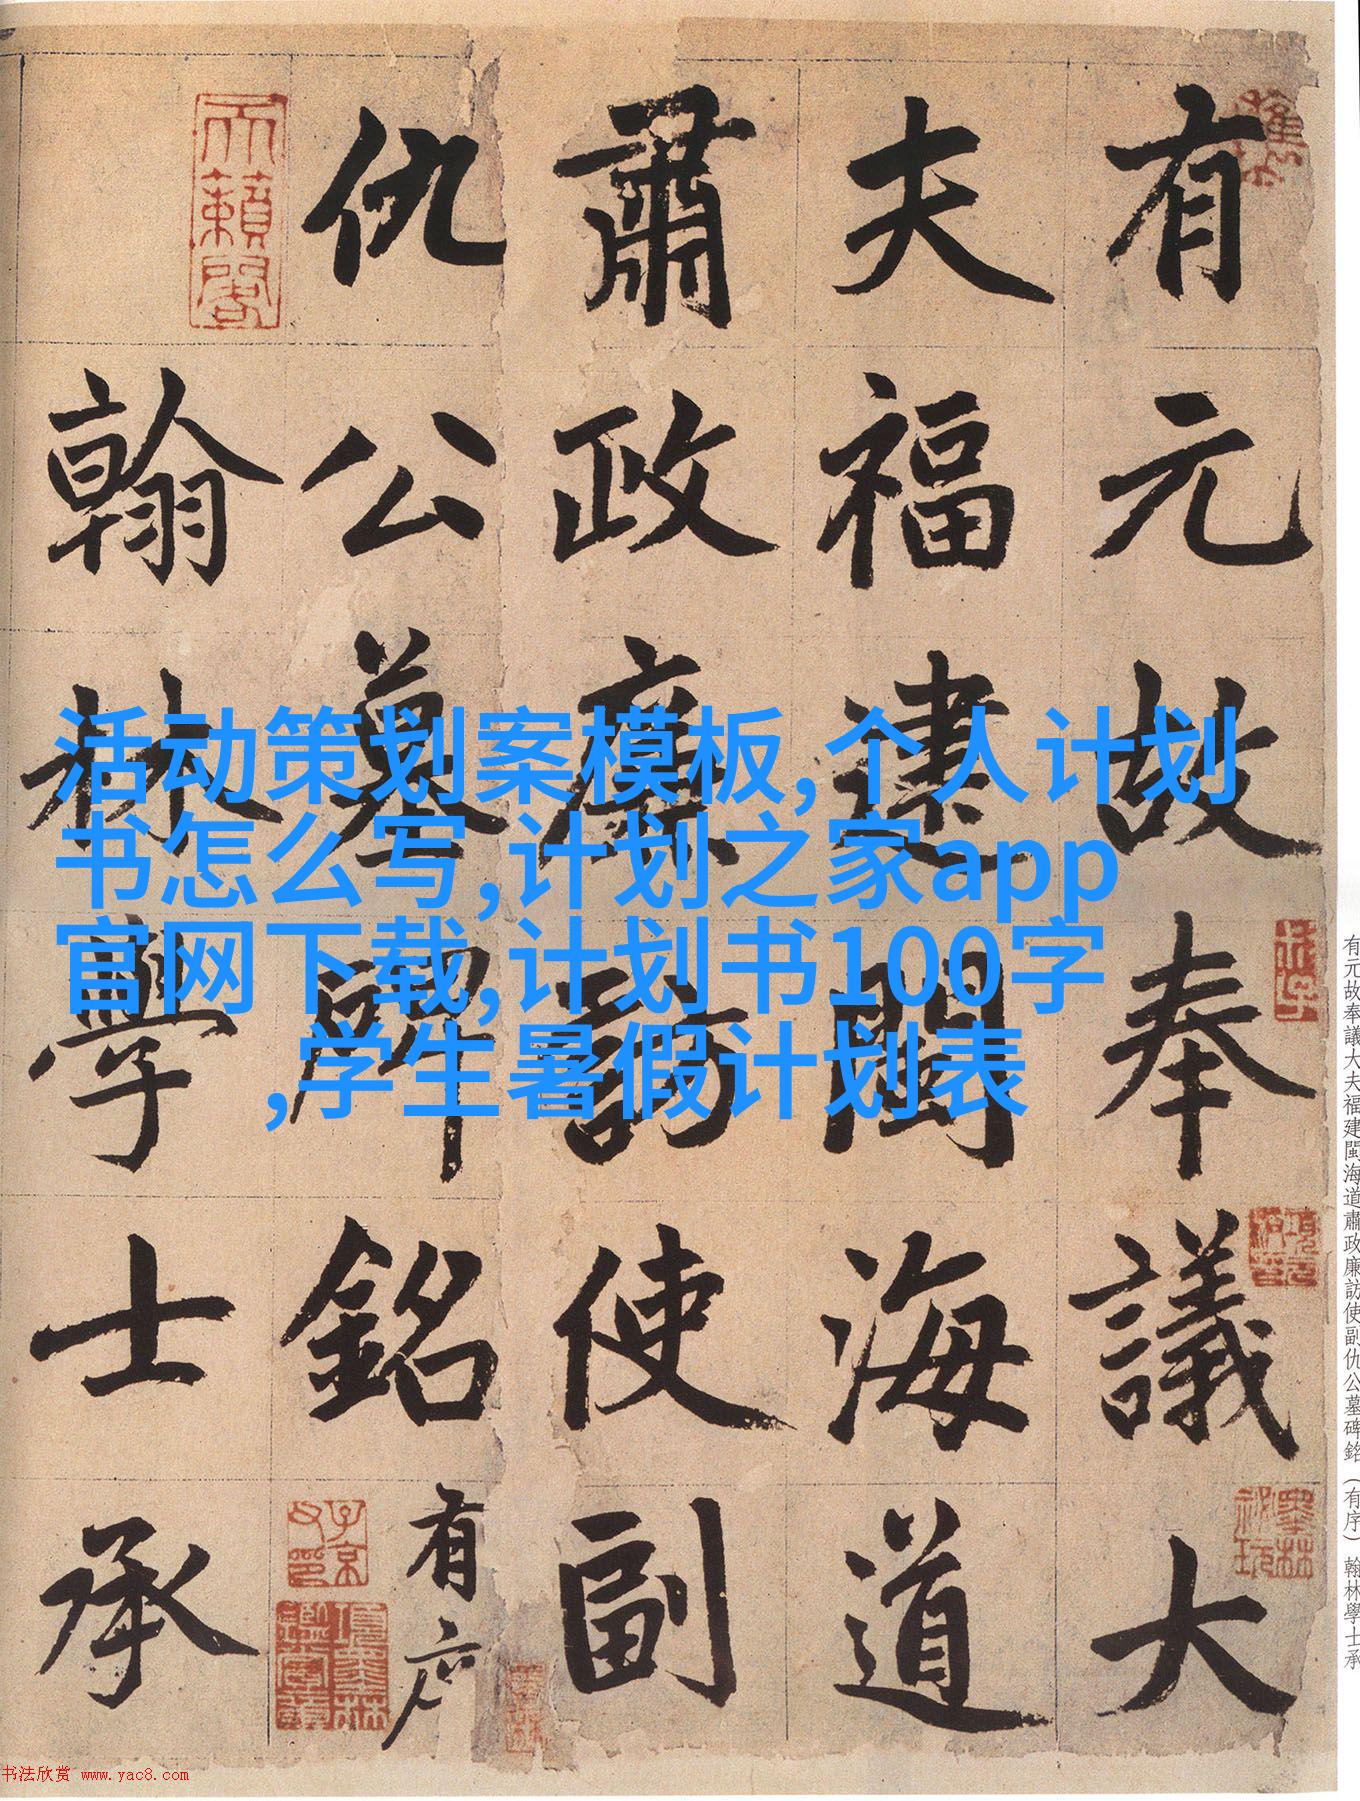 有元故奉議大
夫福建閩海道
肅政廉訪使副
仇公墓碑銘有序
翰林學士承
天籟閣
子京父印
項墨林鑑賞章
活动策划案模板,个人计划
书怎么写,计划之家app
官网下载,计划书100字
,学生暑假计划表
有元故奉議大夫福建閩海道肅政廉訪使副仇公墓碑銘（有序）翰林學士承
书法欣赏 www.yac8.com